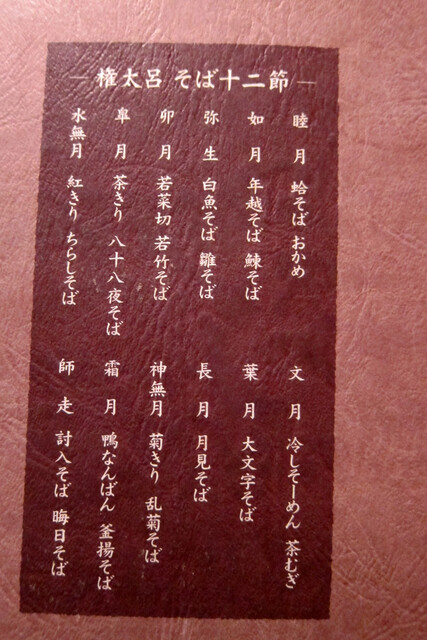 権太呂 そば十二節
睦月 蛤そば おかめ
如月 年越そば 鰊そば
弥生 白魚そば 雛そば
卯月 若菜切 若竹そば
皐月 茶きり 八十八夜そば
水無月 紅きり ちらしそば
文月 冷しそーめん 茶むぎ
葉月 大文字そば
長月 月見そば
神無月 菊きり 乱菊そば
霜月 鴨なんばん 釜揚そば
師走 討入そば 晦日そば